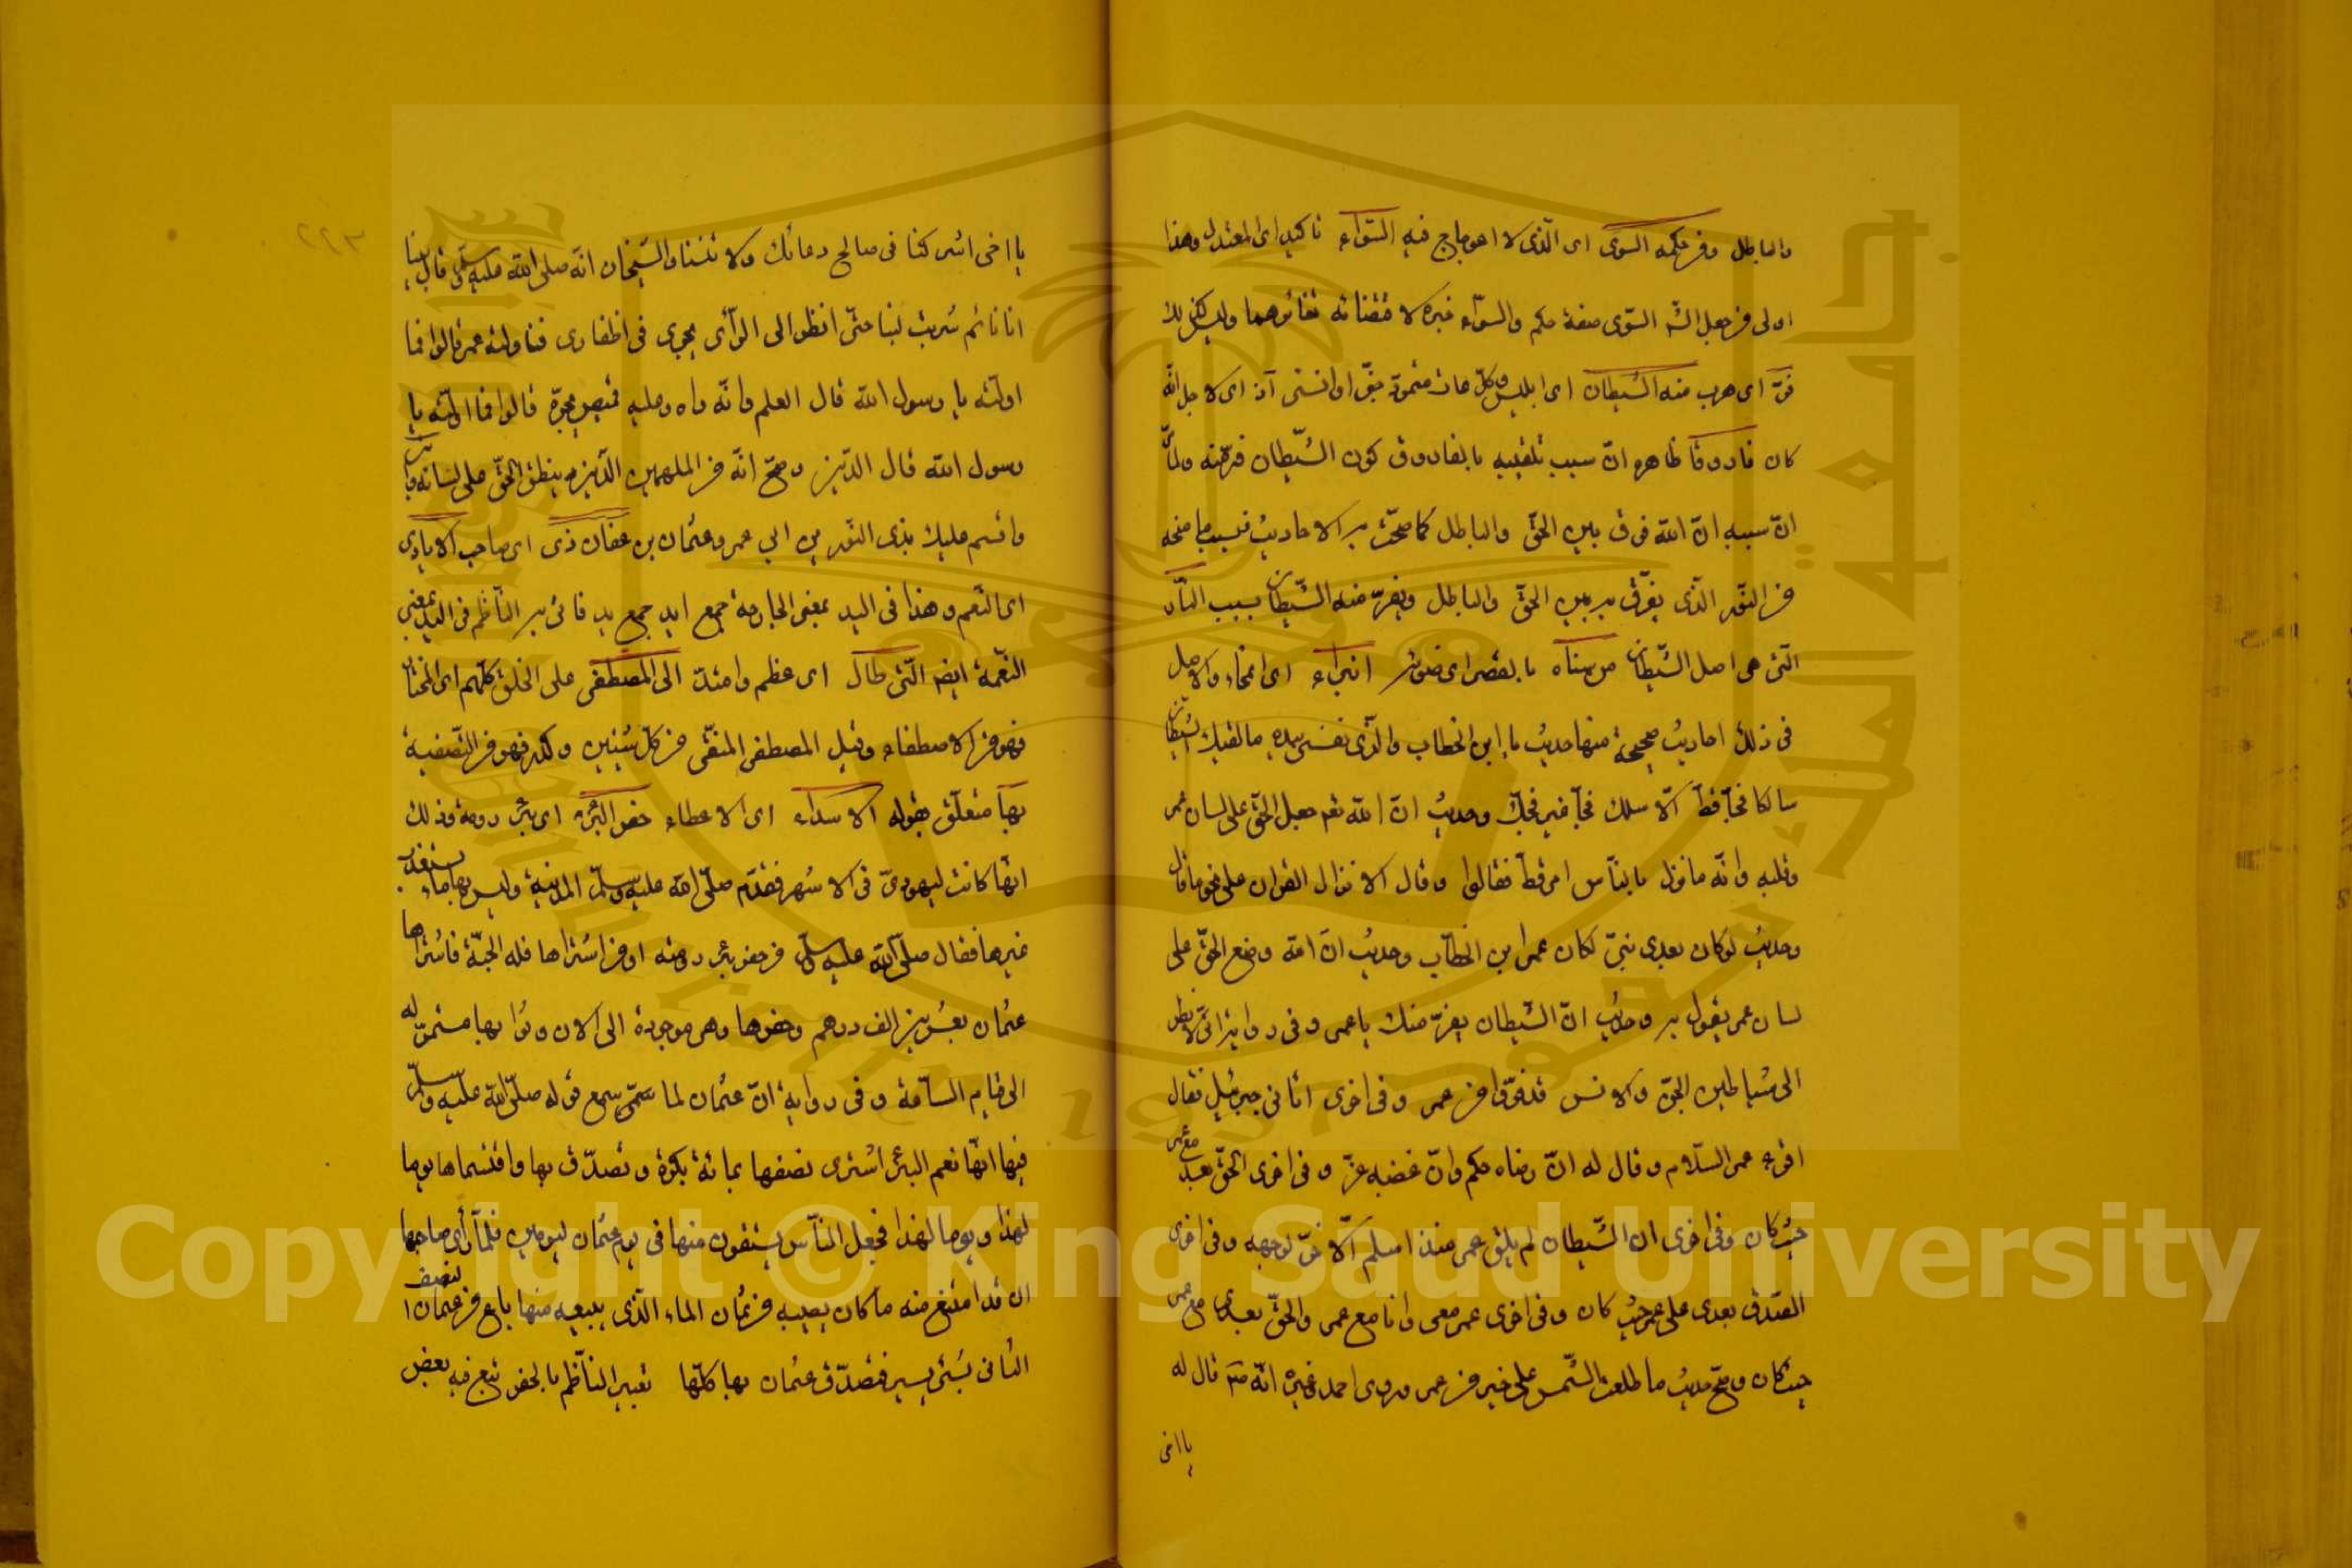 والباطل ومن حكمه السوى اى الذى لا اعوجاج فيه السواء تاكيد اى المعتدل وهذا
اولى من جعل الش السوى صفة حكم والسواء خبره لا قتضائه تغائرهما وليس كذلك
فرّ اى هرب منه الشيطان اى ابليس وكل عات متمرد جنى او انسى اذ اى لاجل انه
كان فاروقا ظاهره ان سبب تلقيبه بالفاروق كون الشيطان فر منه
ان سببه ان الله فرق بين الحق والباطل كما صحت به الاحاديث فبسبب ما منحه
من النور الذى يفرق به بين الحق والباطل ويفر منه الشيطان بسبب النار
التى هى اصل الشيطان من سناه بالقصر اى ضوئه انبراء اى والاصل
فى ذلك احاديث صحيحة منها حديث يا ابن الخطاب والذى نفسى بيده ما لقيك الشيطان
سالكا فجا قط الا سلك فجا غير فجك وحديث ان الله تعم جعل الحق على لسان عمر
وقلبه وانه ما نزل بالناس امر قط فقالوا وقال الا نزل القران على نحو ما قال
وحديث لو كان بعدى نبى لكان عمر ابن الخطاب وحديث ان الله وضع الحق على
لسان عمر يقول به وحديث ان الشيطان يفر منك يا عمر وفى رواية انى لانظر
الى شياطين الجن والانس قد فروا من عمر وفى اخرى اتانى جبرئيل فقال
اقرء عمر السلام وقال له ان رضاه حكم وان غضبه عز وفى اخرى الحق بعدى مع عمر
حيث كان وفى اخرى ان الشيطان لم يلق عمر منذ اسلم الا خر لوجهه وفى اخرى
الصدق بعدى على عمر حيث كان وفى اخرى عمر معى وانا مع عمر والحق بعدى مع عمر
حيث كان وصح حديث ما طلعت الشمس على خير من عمر وروى احمد وغيره انه صم قال له
يا اخى
يا اخى اشركنا فى صالح دعائك ولا تنسنا والشيخان انه صلى الله عليه وسلم قال بينا
انا نائم شربت لبنا حتى انظر الى الرأى يجرى فى اظفارى فناولته عمر قالوا فما
اولته يا رسول الله قال العلم وانه راه وعليه قميص يجره قالوا فما اولته يا
رسول الله قال الدين وصح انه من الملهمين الذين ينطق الحق على لسانه
واقسم عليك بذى النورين ابى عمرو عثمان بن عفان ذى اى صاحب الايادى
اى النعم وهذا فى اليد بمعنى الجارحة جمع ايد جمع يد فاتى به الناظم فى اليد بمعنى
النعمة ايضا التى طال اى عظم وامتد الى المصطفى على الخلق كلهم اى المختار
فهو من الاصطفاء وقيل المصطفى المنقى من كل شين وكدر فهو من التصفية
بها متعلق بقوله الاسداء اى الاعطاء حفر البئر اى بئر رومة وذلك
انها كانت ليهودى فى الاشهر فقدم صلى الله عليه وسلم المدينة وليس بها ماء يستعذب
غيرها فقال صلى الله عليه وسلم من حفر بئر رومة او من اشتراها فله الجنة فاشتراها
عثمان بعشرين الف درهم وحفرها وهى موجودة الى الان وثوابها مستمر له
الى قيام الساعة وفى رواية ان عثمان لما سمع قوله صلى الله عليه وسلم
فيها انها نعم البئر اشترى نصفها بمائة بكرة وتصدق بها واقتسماها يوما
لهذا ويوما لهذا فجعل الناس يستقون منها فى يوم عثمان ليومين فلما رأى صاحبها
ان قد امتنع منه ما كان يصيبه من ثمان الماء الذى يبيعه منها باع من عثمان النصف
الثانى بشئ يسير فتصدق عثمان بها كلها تعبير الناظم بالحفر تبع فيه بعض